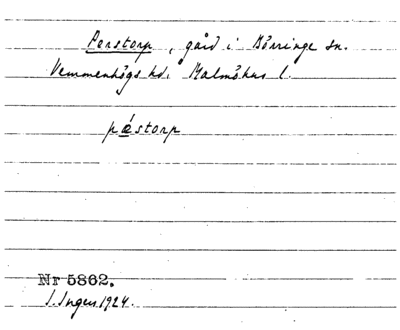 Perstorp, gård i Börringe sn.
Vemmenhögs hd. Malmöhus l.
pǽstorp
Nr 5862.
I. Ingers 1924.